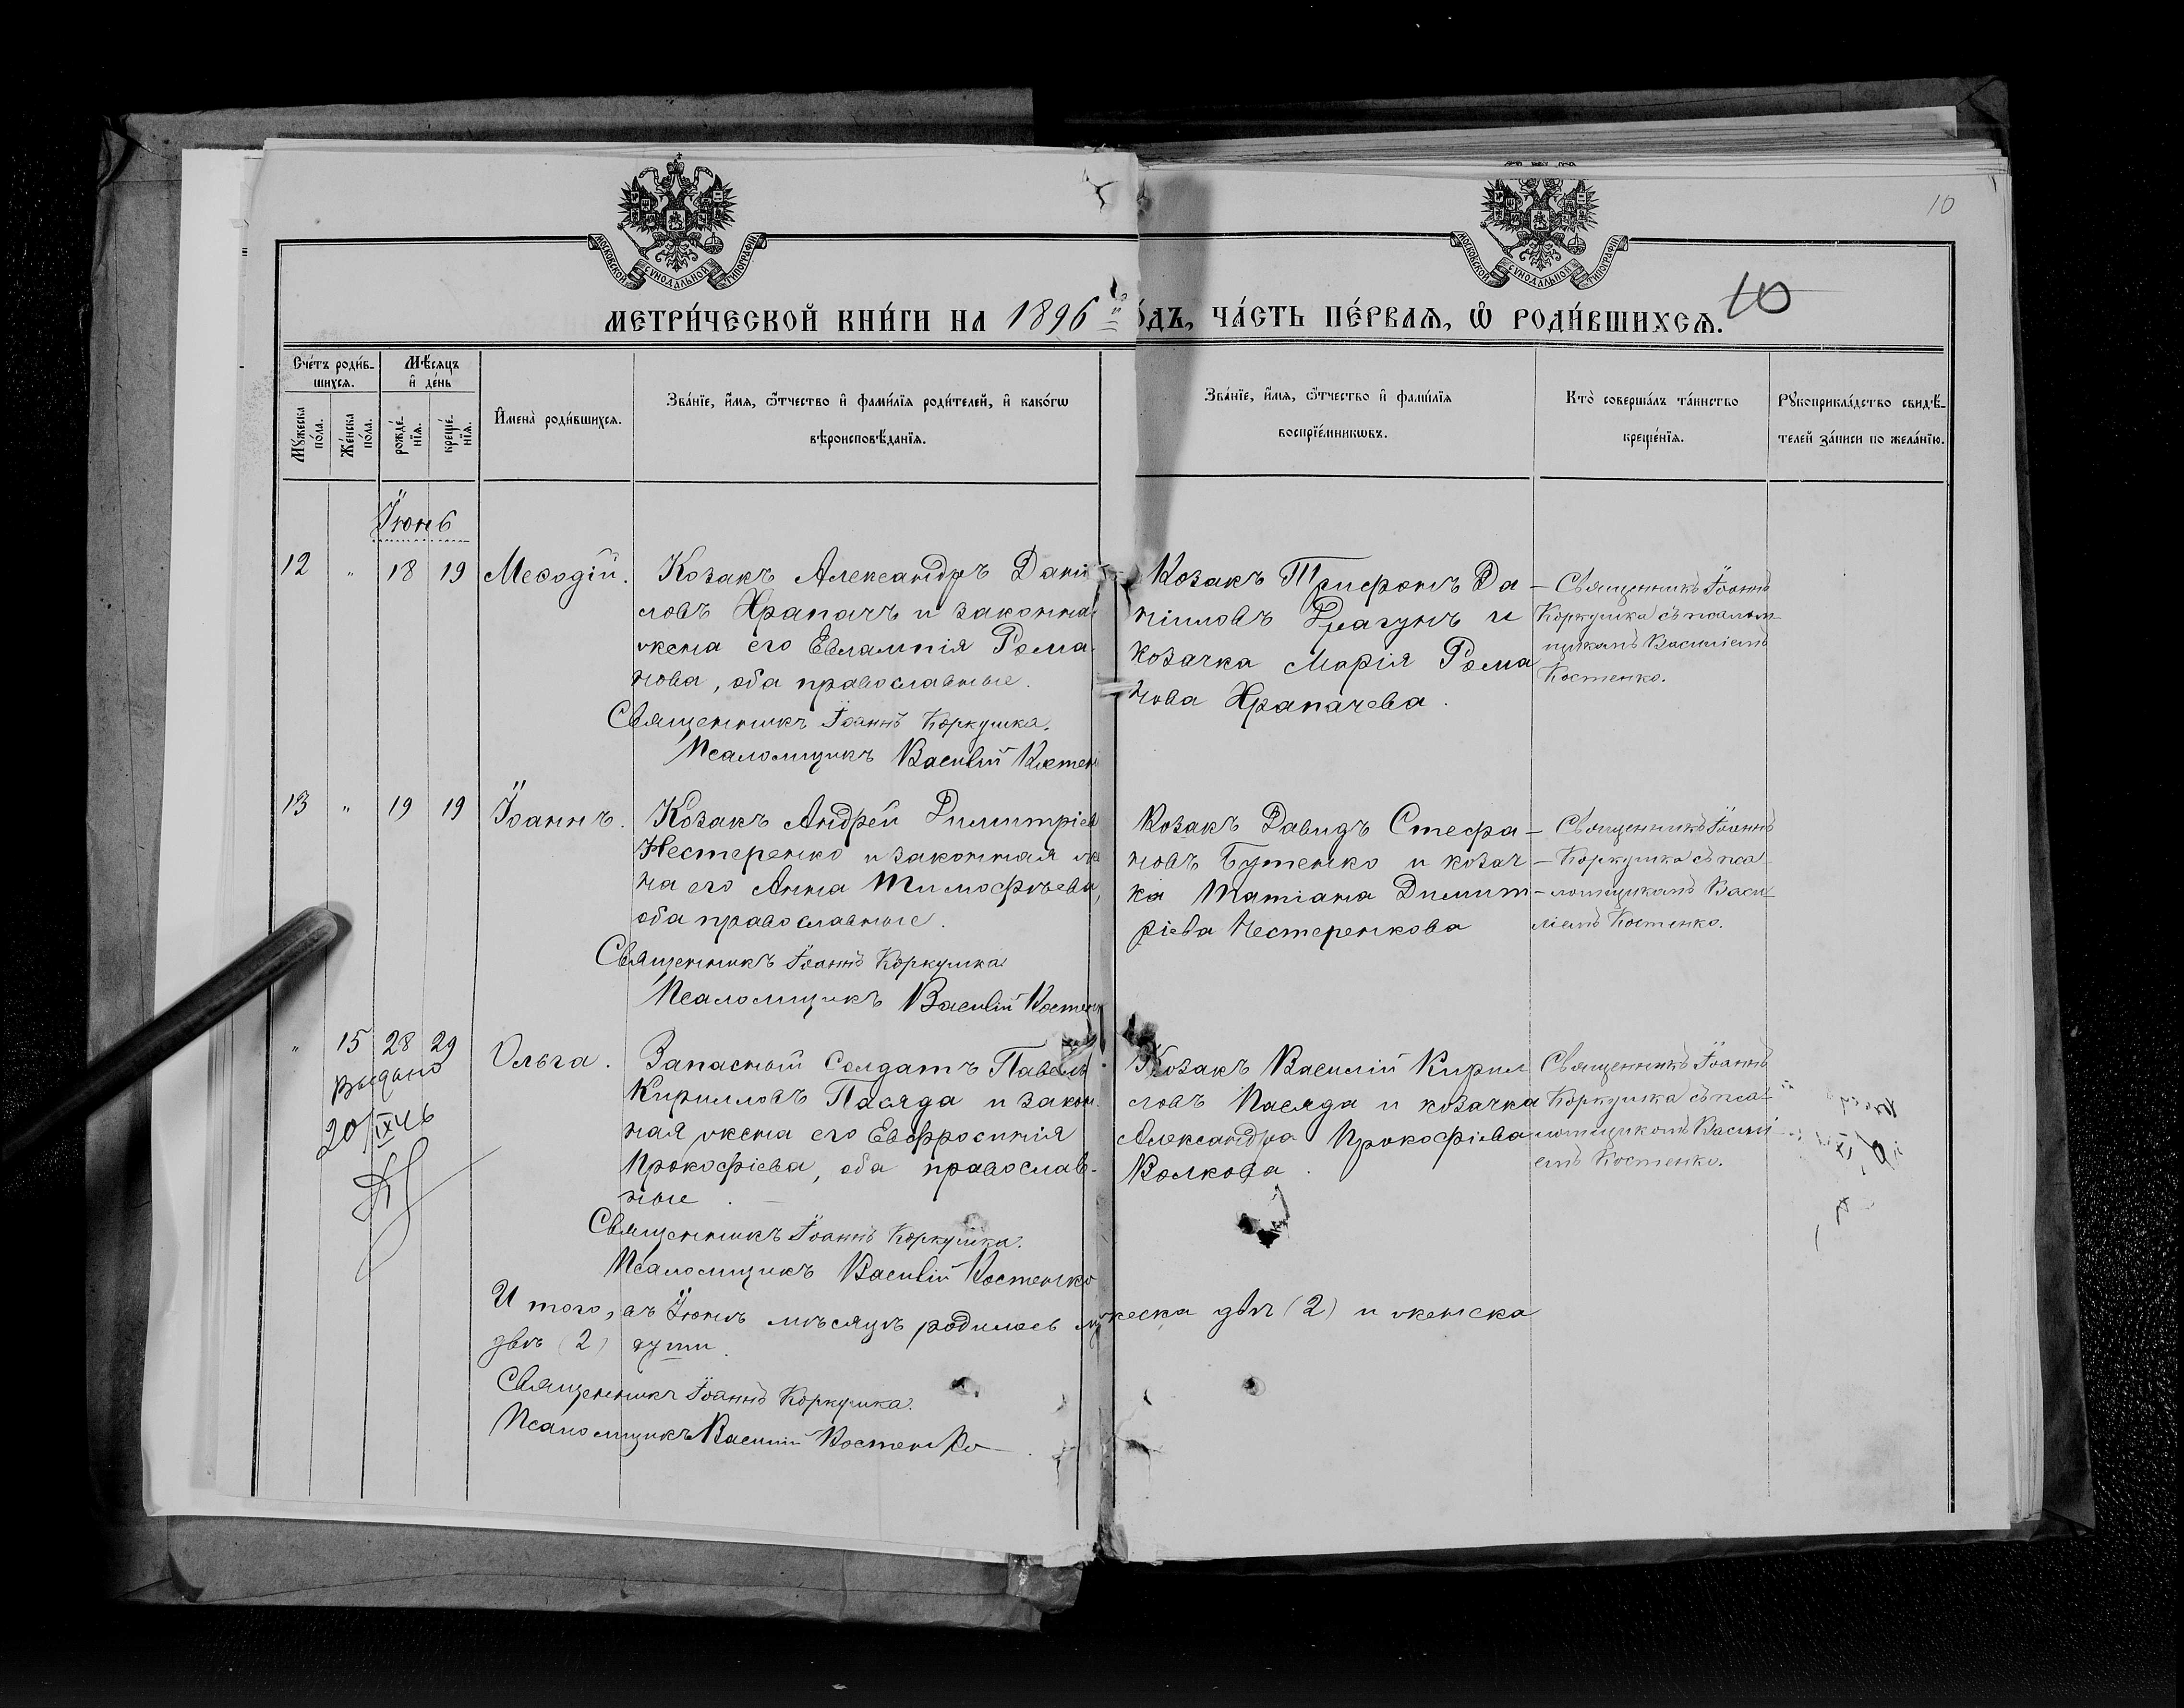 10
МОСКОВСКОЙ СѴНОДАЛЬНОЙ ТИПОГРАФІИ
МОСКОВСКОЙ СѴНОДАЛЬНОЙ ТИПОГРАФІИ
МЕТРИ́ЧЕСКОЙ КНИ́ГИ НА 1896 й
ОДЪ, ЧА́СТЬ ПЕ́РВАѦ, Ѡ РОДИ́ВШИХСѦ. 10
Сче́тъ роди́в-
шихсѧ.
Мꙋ́жеска
по́ла.
Же́нска
по́ла.
Мѣ́сѧцъ
и҆ де́нь
рожде́-
нїѧ.
креще́-
нїѧ.
И҆мена̀ роди́вшихсѧ.
Зва́нїе, и҆́мѧ, ѻ҆́тчество и҆ фами́лїѧ роди́телей, и҆ како́гѡ
вѣроисповѣ́данїѧ.
Зва́нїе, и҆́мѧ, ѻ҆́тчество и҆ фами́лїѧ
воспрїе́мникѡвъ.
Кто̀ соверша́лъ та́инство
креще́нїѧ.
Рꙋкоприкла́дство свидѣ́-
телей за́писи по жела́нїю.
Іюнь
12 " 18 19 Меѳодій. Козакъ Александръ Дани
ловъ Храпачъ и законна
жена его Евлампія Рома-
нова, оба православные.
Священникъ Іоаннъ Коркушка.
Псаломщикъ Василій Костен
Козакъ Трифонъ Да-
ніиловъ Драгунъ и
козачка Марія Рома
нова Храпачева.
Священникъ Іоаннъ
Коркушка съ псалом-
щикомъ Василіемъ
Костенко.
13 " 19 19 Іоаннъ. Козакъ Андрей Димитріев
Нестеренко и законная же
на его Анна Тимофѣева,
оба православные.
Священникъ Іоаннъ Коркушка
Псаломщикъ Василій Костен
Козакъ Давидъ Стефа-
новъ Бутенко и козач
ка Татіана Димит-
ріева Нестеренкова
Священникъ Іоаннъ
Коркушка съ пса-
ломщикомъ Васи-
ліемъ Костенко.
" 15 28 29 Ольга. Запасный Солдатъ Павелъ
Кирилловъ Пасяда и закон-
ная жена его Евфросинія
Прокофіева, оба православ-
ные.
Выдано
20/IX 46
Священникъ Іоаннъ Коркушка.
Псаломщикъ Василій Костенко
Козакъ Василій Кирил
ловъ Пасяда и козачка
Александра Прокофіева
Волкова.
Священникъ Іоаннъ
Коркушка съ пса-
ломщикомъ Васил
емъ Костенко.
И того, въ Іюнѣ мѣсяцѣ родилось мужеска двѣ (2) и женска
двѣ (2) души.
Священникъ Іоаннъ Коркушка.
Псаломщикъ Василій Костенко